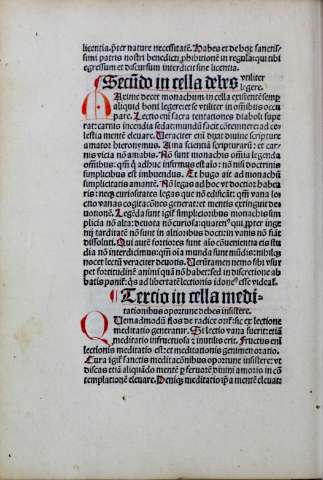 licentia. p̄ter nature necessitatē. Habes et de hoc sanctis-
simi patris nostri benedicti phibitionē in regula: qui tibi
egressum et discursum interdicit sine licentia.
¶ Secūdo in cella debes vtiliter
legere.
MAxime decet monachum in cella existentē semp
aliquid boni legere: et se vtilibus in omnibus occu
pare. Lectio em̄ sacra tentationes diaboli supe
rat: carnis incendia sedat: mundū facit cōtemnere: ad ce
lestia mentē eleuare. Veraciter em̄ dixit diuine scripture
amator hieronymus. Ama scientiā scripturarū: et car
nis vicia nō amabis. Nō sunt monachis omnia legenda
omnibus: qm̄ q̄ adhuc infirmus est aīo: nō nisi doctrinis
simplicibus est imbuendus. Et hugo ait ad monachū
simplicitatis amante. Nō legas ad hoc vt doctior habea
ris: neqz curiositates legas que nō edificāt: qm̄ vana lec
tio vanas cogitatōnes generat: et mentis extinguit de-
uotionē. Legēda sunt igit̄ simplicioribus monachis sim
plicia nō alta: deuota nō curiosa: quaten̄ qui ppter inge
nij tarditatē nō sunt in altioribus doctrin vanis nō fiāt
dissoluti. Qui autē fortiores sunt aīo cōuenientia eis stu
dia nō interdicimus: qm̄ oīa munda sunt mūdis: nihilqz
nocet lectū veraciter deuotis. Verūtamen nemo sibi vsur
pet fortitudinē animi quā nō habet: sed in discretione ab
batis ponit: qs ad libertatē lectionis idone esse videat̄.
¶ Tercio in cella medi-
tationibus oportune debes insistere.
QUemadmodū flos de radice orit̄: sic ex lectione
meditatio generatur. Si lectio vana fuerit: etiā
meditatio infructuosa & inutilis erit. Fructus em̄
lectionis meditatio est: et meditationis genimen oratio.
Cura igit̄ sanctis meditacōnibus oportune insistere: vt
discas etiā aliquādo mentē p feruorē diuini amoris in cō
templationē eleuare. Deniqz meditatio ip̄a mentē eleuat: